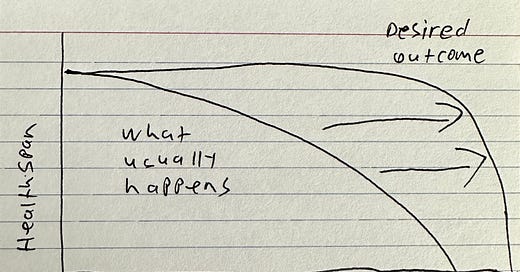 Desired
outcome
what
usually
happens
Healthspan